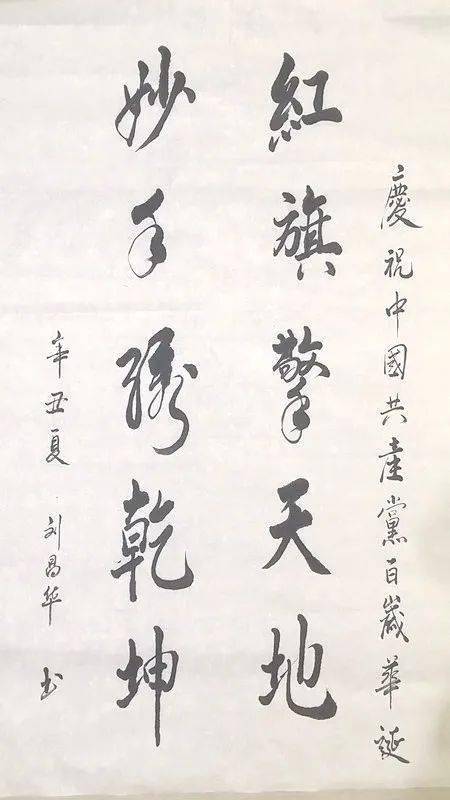 慶祝中國共產黨百歲華誕
紅旗擎天地
妙手綉乾坤
辛丑夏 刘昌华 书